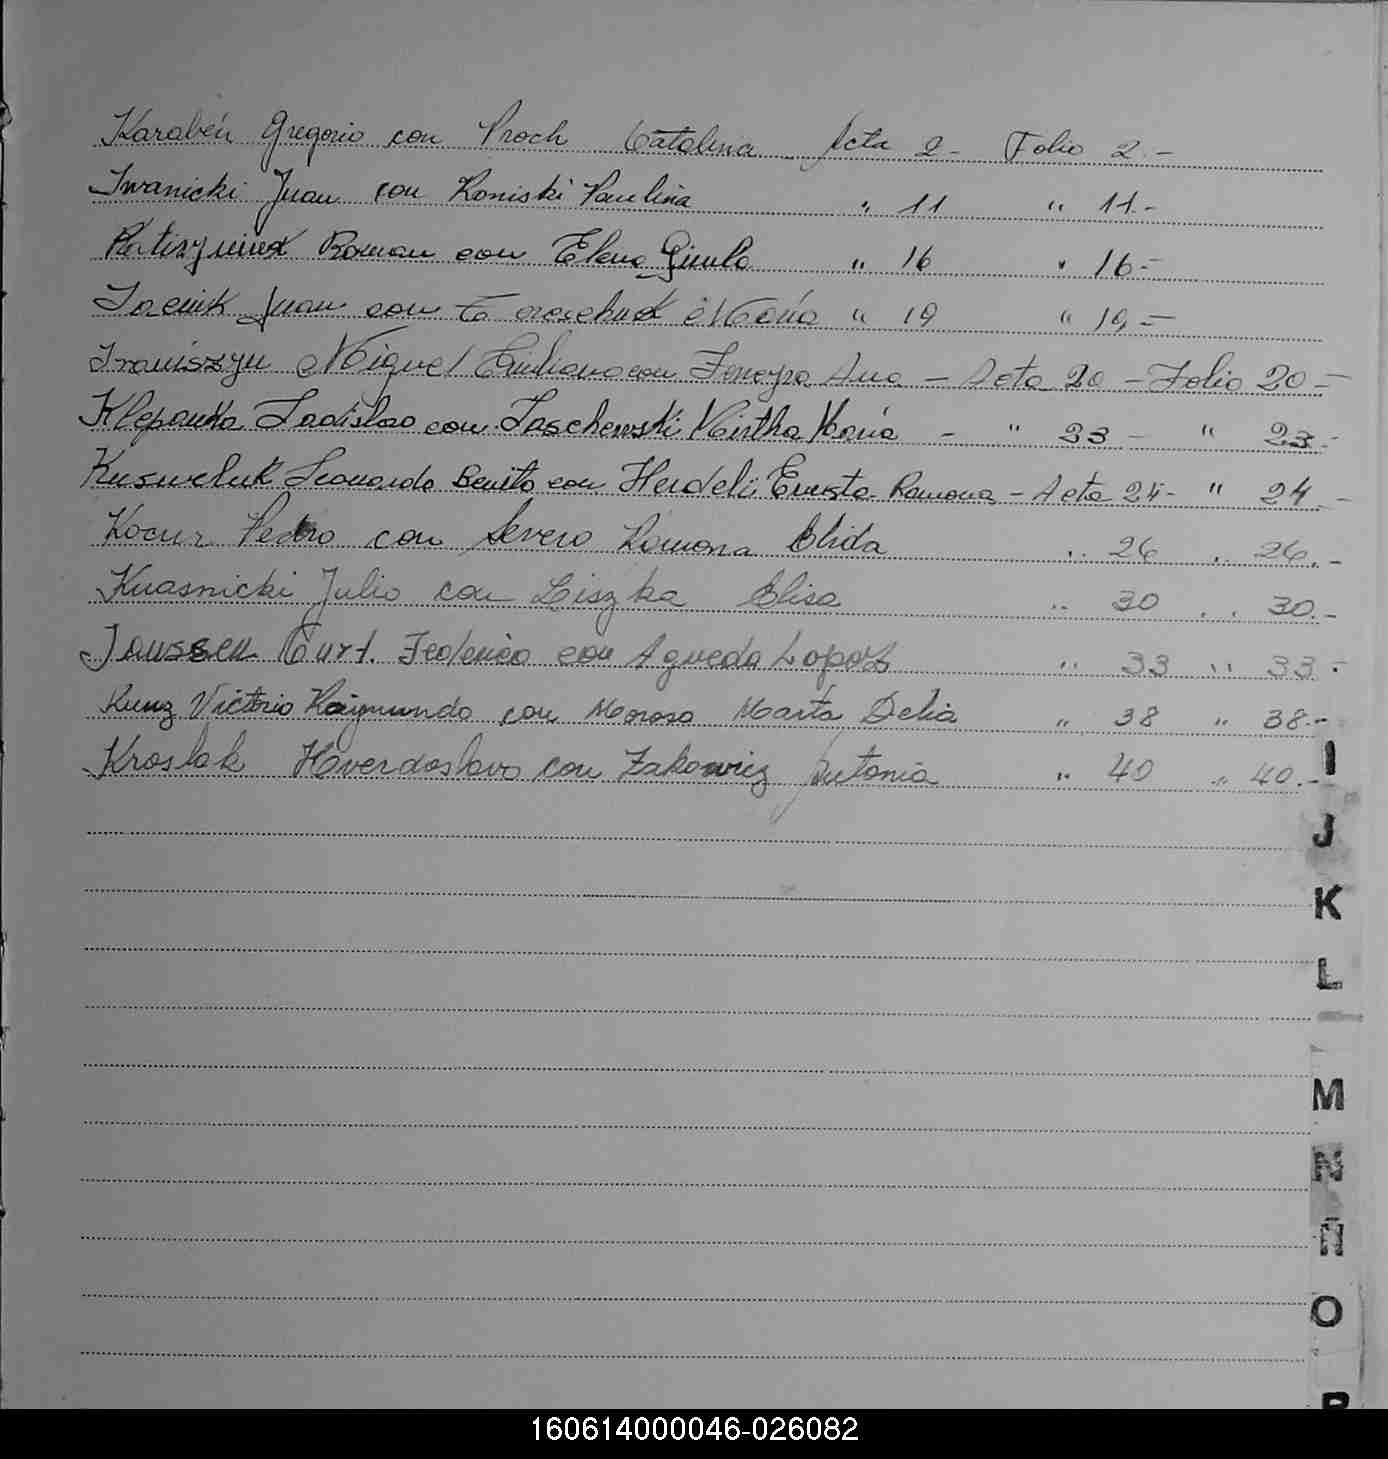 Karabén Gregorio con Proch Catalina Acta 2 - Folio 2.-
Iwanicki Juan con Koniski Paulina " 11 " 11.-
Roman con Elena " 16 " 16.-
Juan con María " 19 " 19.-
Miguel Emiliano con Ferreyra Ana - Acta 20 - Folio 20 -
Ladislao con Taschewski Mirtha María - " 23 - " 23.-
Leonardo Benito con Ernesta Ramona - Acta 24 - " 24.-
Kocur Pedro con Severo Ramona Elida .. 26 .. 26.-
Knasnicki Julio con Liszka Elisa .. 30 .. 30.-
Janssen Curt. Federico con Agueda Lopez " 33 " 33.-
Kunz Victorio Raymundo con Moroso Marta Delia " 38 " 38.-
Kroslak Hverdoslavo con Zakowicz Antonia " 40 " 40.-
I
J
K
L
M
N
Ñ
O
P
160614000046-026082